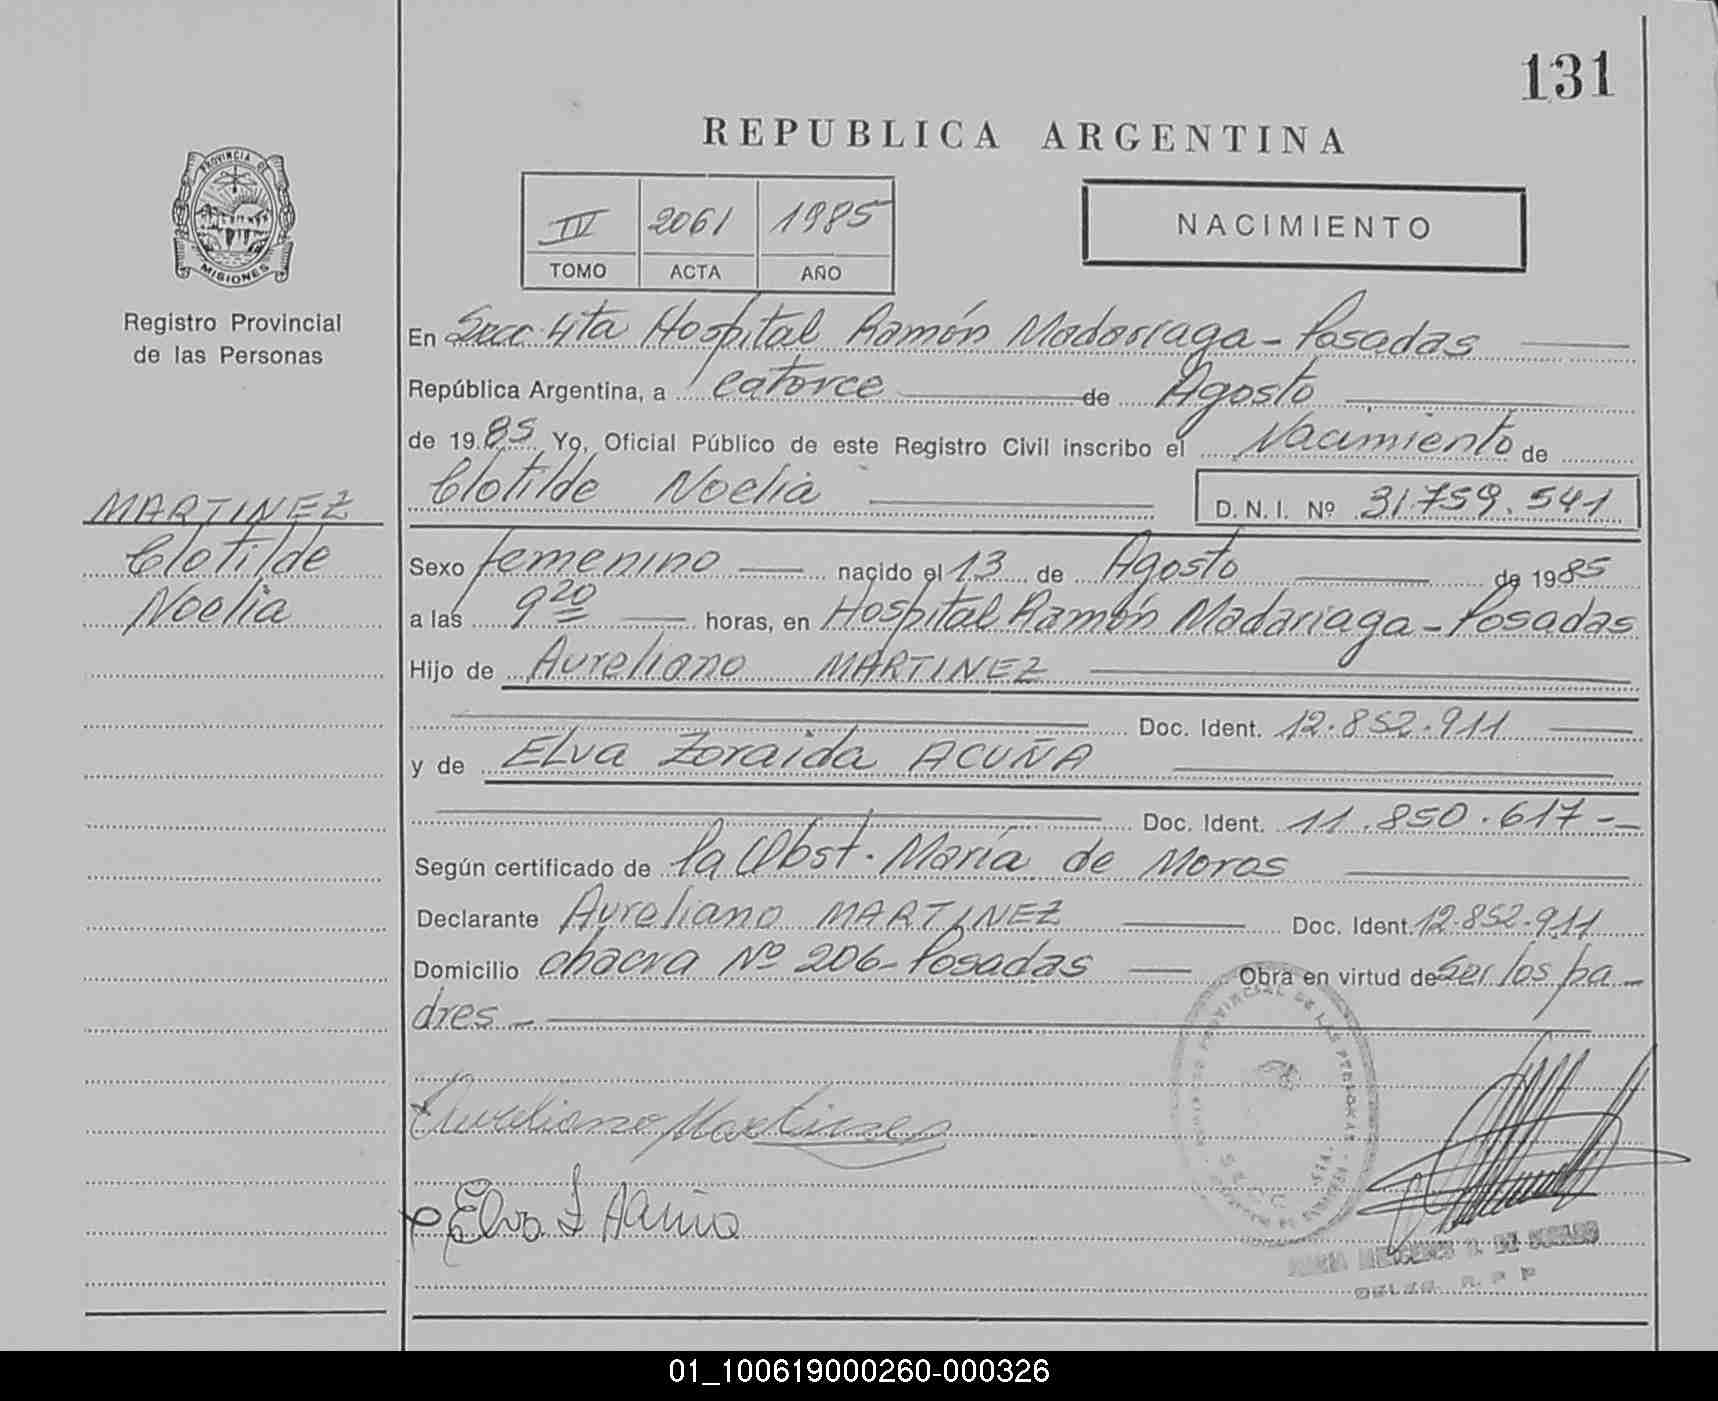 131
REPUBLICA ARGENTINA
PROVINCIA DE
MISIONES
Registro Provincial
de las Personas
IV 2061 1985
TOMO ACTA AÑO
NACIMIENTO
En Secc. 4ta Hospital Ramón Madariaga - Posadas
República Argentina, a catorce de Agosto
de 1985 Yo, Oficial Público de este Registro Civil inscribo el Nacimiento de
Clotilde Noelia D. N. I. Nº 31.759.541
MARTINEZ
Clotilde
Noelia
Sexo femenino nacido el 13 de Agosto de 1985
a las 9 20 horas, en Hospital Ramón Madariaga - Posadas
Hijo de Aureliano MARTINEZ
Doc. Ident. 12.852.911
y de ELva Zoraida ACUÑA
Doc. Ident. 11.850.617 -
Según certificado de la Obst. María de Moras
Declarante Aureliano MARTINEZ Doc. Ident. 12.852.911
Domicilio chacra Nº 206 - Posadas Obra en virtud de ser los pa-
dres -
Aureliano Martinez
Elva Z Acuña
01_100619000260-000326